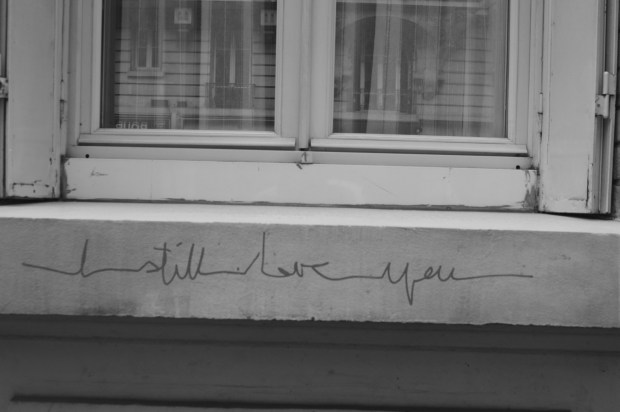 I still love you